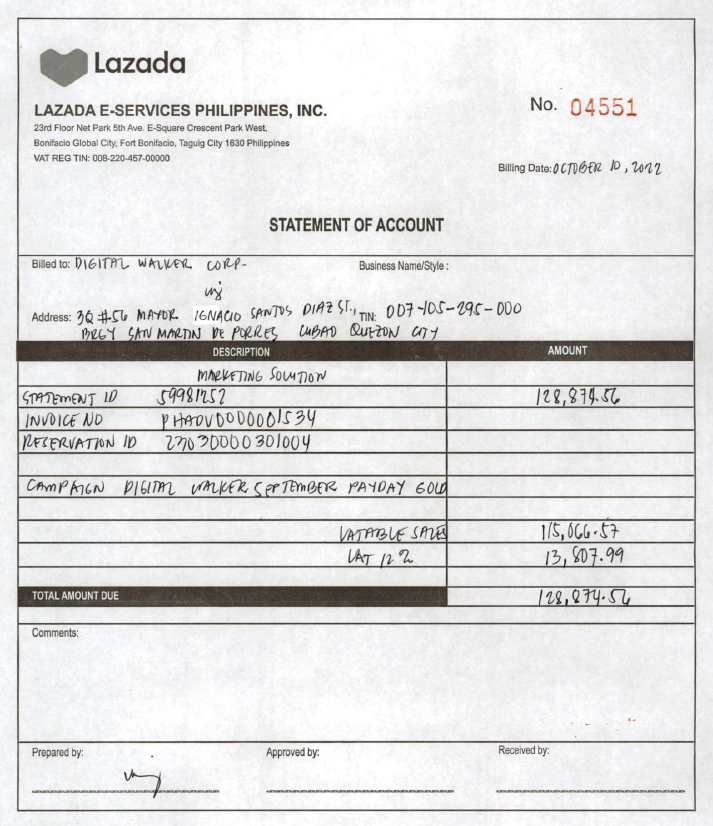 Lazada
LAZADA E-SERVICES PHILIPPINES, INC.
No. 04551
23rd Floor Net Park 5th Ave. E-Square Crescent Park West,
Bonifacio Global City, Fort Bonifacio, Taguig City 1630 Philippines
VAT REG TIN: 008-220-457-00000
Billing Date: OCTOBER 10, 2022
STATEMENT OF ACCOUNT
Billed to: DIGITAL WALKER CORP.
Business Name/Style :
Address: 3Q #56 MAYOR IGNACIO SANTOS DIAZ ST., TIN: 007-105-295-000
BRGY SAN MARTIN DE PORRES CUBAO QUEZON CITY
DESCRIPTION AMOUNT
MARKETING SOLUTION
STATEMENT ID 59981252 128,874.56
INVOICE NO PHADV0000001534
RESERVATION ID 27030000301004
CAMPAIGN DIGITAL WALKER SEPTEMBER PAYDAY GOLD
VATABLE SALES 115,066.57
VAT 12% 13,807.99
TOTAL AMOUNT DUE 128,874.56
Comments:
Prepared by: Approved by: Received by: